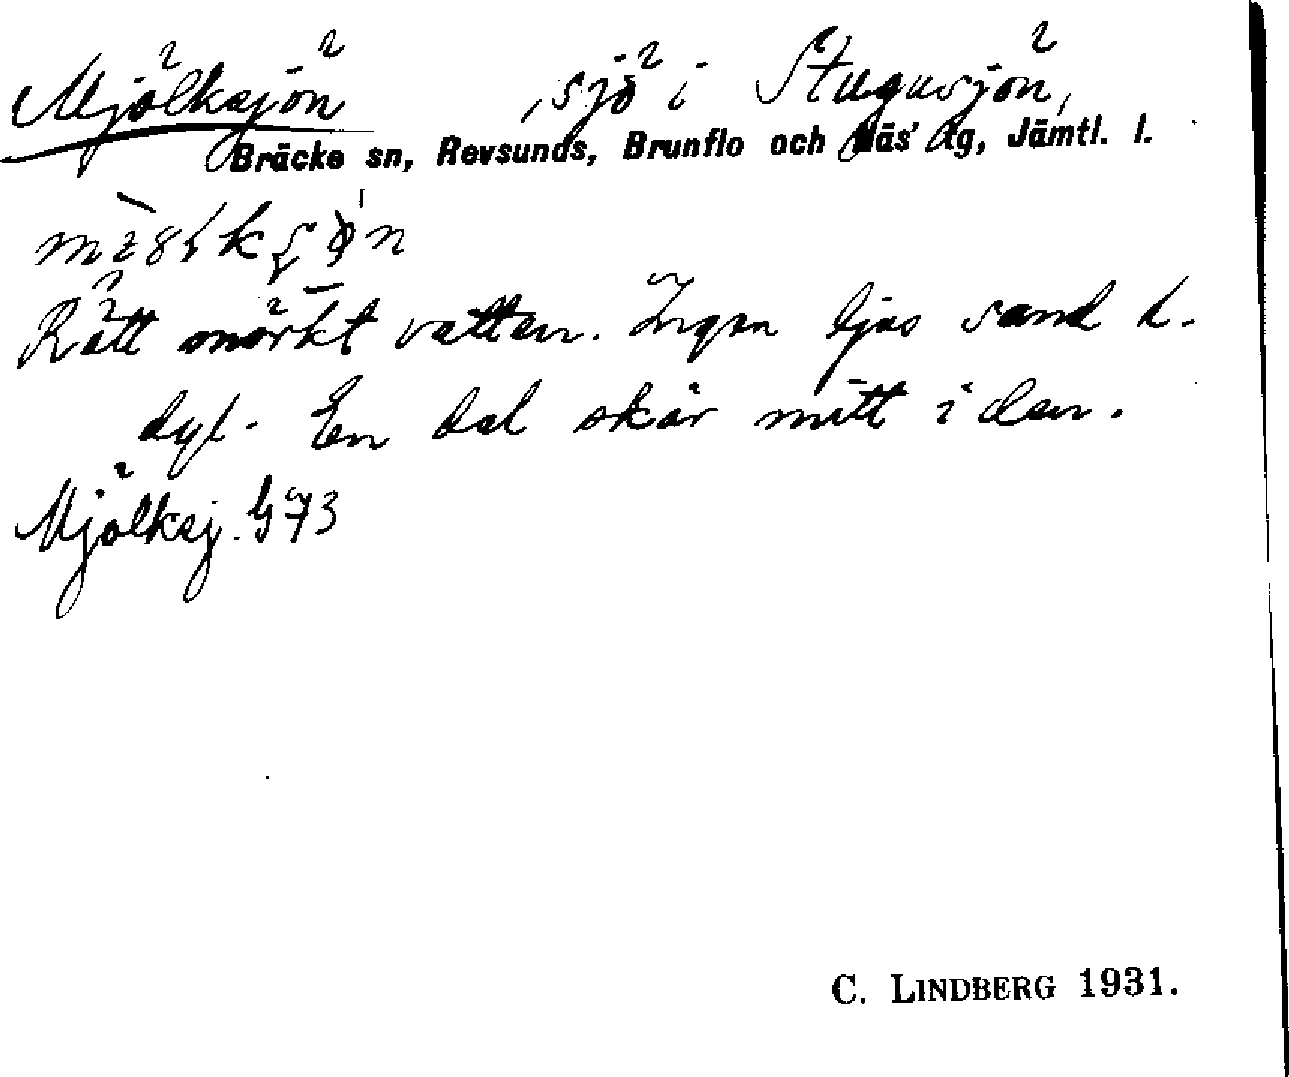 Mjölksjön , sjö i Stugusjön,
Bräcke sn, Revsunds, Brunflo och Näs' tg, Jämtl. l.
Rätt mörkt vatten. Ingen ljus sand l.
dyl. En dal skär mitt i den.
Mjölksj. G 73
C. LINDBERG 1931.